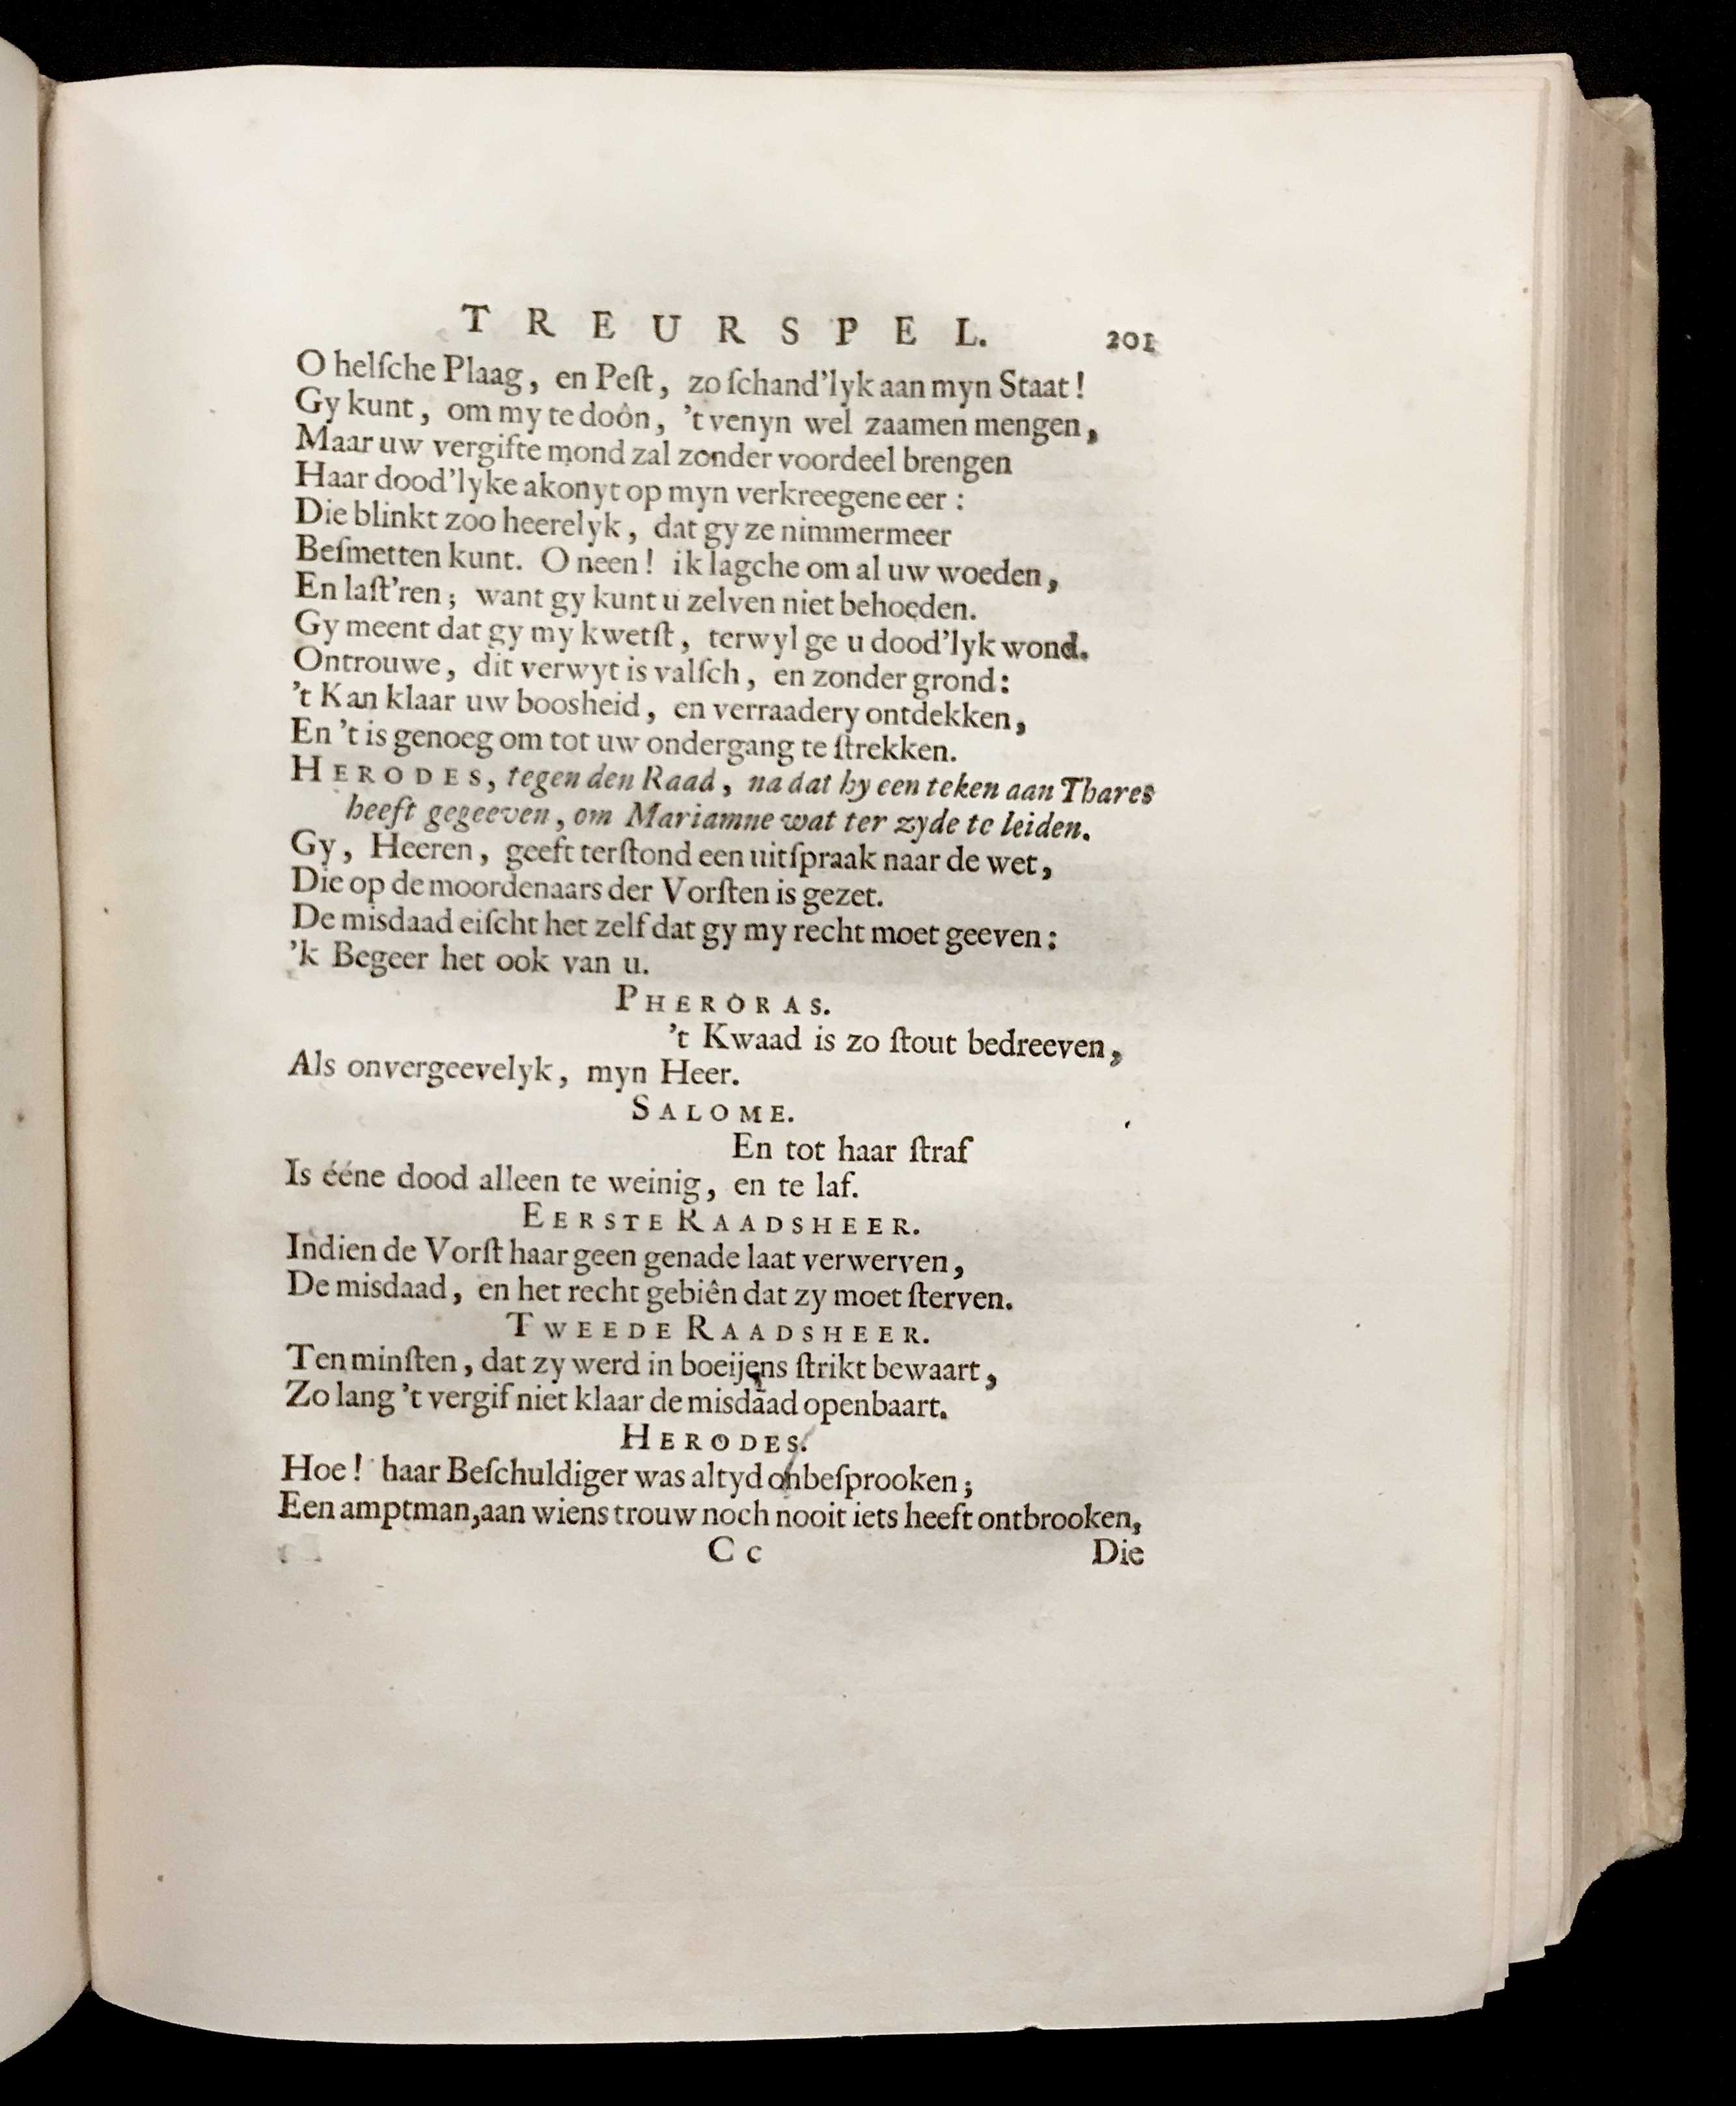 TREURSPEL. 201
O helſche Plaag, en Peſt, zo ſchand'lyk aan myn Staat!
Gy kunt, om my te doôn, 't venyn wel zaamen mengen,
Maar uw vergifte mond zal zonder voordeel brengen
Haar dood'lyke akonyt op myn verkreegene eer:
Die blinkt zoo heerelyk, dat gy ze nimmermeer
Beſmetten kunt. O neen! ik lagche om al uw woeden,
En laſt'ren; want gy kunt u zelven niet behoeden.
Gy meent dat gy my kwetſt, terwyl ge u dood'lyk wond.
Ontrouwe, dit verwyt is valſch, en zonder grond:
't Kan klaar uw boosheid, en verraadery ontdekken,
En 't is genoeg om tot uw ondergang te ſtrekken.
HERODES, tegen den Raad, na dat hy een teken aan Thares
heeft gegeeven, om Mariamne wat ter zyde te leiden.
Gy, Heeren, geeft terſtond een uitſpraak naar de wet,
Die op de moordenaars der Vorſten is gezet.
De misdaad eiſcht het zelf dat gy my recht moet geeven:
'k Begeer het ook van u.
PHERORAS.
't Kwaad is zo ſtout bedreeven,
Als onvergeevelyk, myn Heer.
SALOME.
En tot haar ſtraf
Is ééne dood alleen te weinig, en te laf.
EERSTE RAADSHEER.
Indien de Vorſt haar geen genade laat verwerven,
De misdaad, en het recht gebiên dat zy moet ſterven.
TWEEDE RAADSHEER.
Ten minſten, dat zy werd in boeijens ſtrikt bewaart,
Zo lang 't vergif niet klaar de misdaad openbaart.
HERODES.
Hoe! haar Beſchuldiger was altyd onbeſprooken;
Een amptman, aan wiens trouw noch nooit iets heeft ontbrooken,
Cc Die